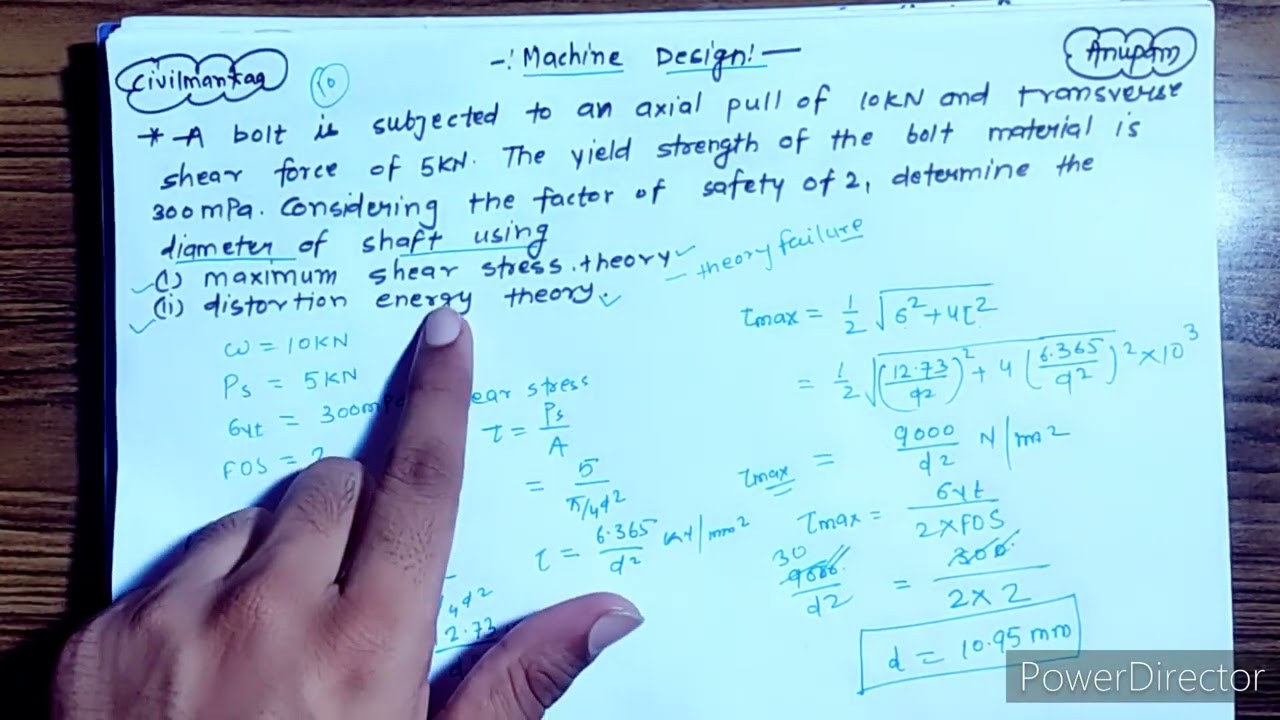 Civilmantaa
10
-: Machine Design:-
Anupam
* - A bolt is subjected to an axial pull of 10KN and transverse
shear force of 5KN. The yield strength of the bolt material is
300mPa. Considering the factor of safety of 2, determine the
diameter of shaft using
(i) maximum shear stress theory
(ii) distortion energy theory.
theory failure
ω = 10KN
Ps = 5KN
6yt = 300m
FOS = 2
ear stress
τ = Ps/A
= 5/π/4d²
τ = 6.365/d² KN/mm²
/4d²
2.73
τmax = 1/2 √6²+4τ²
= 1/2 √(12.73/d²)² + 4(6.365/d²)² × 10³
τmax = 9000/d² N/mm²
τmax = 6yt/2×FOS
30
9000/d2 = 300/2×2
d = 10.95 mm
PowerDirector